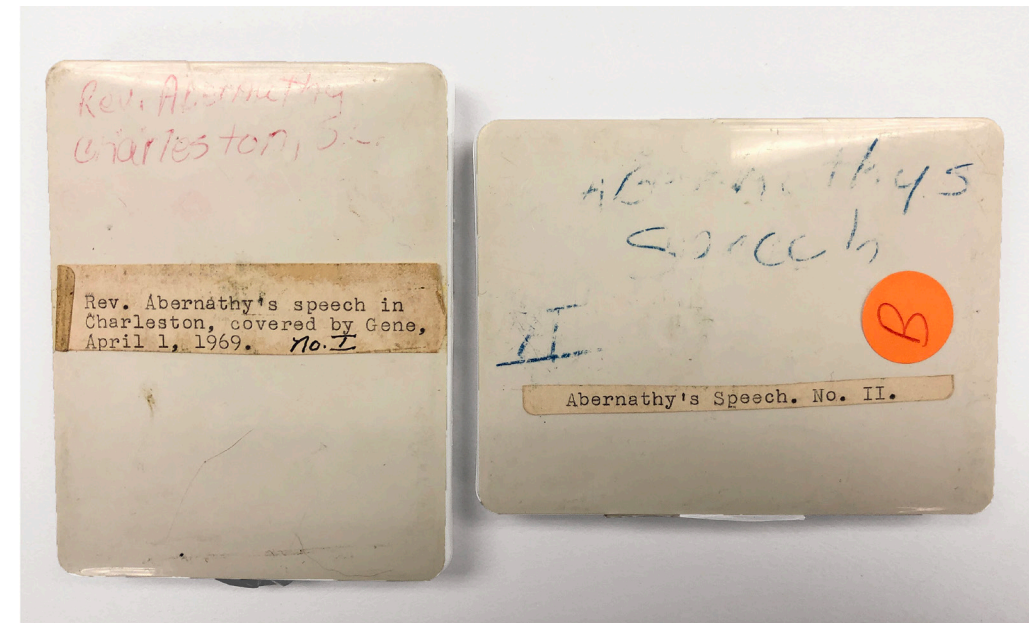 Rev. Abernathy
Charleston, S.C.
Rev. Abernathy's speech in
Charleston, covered by Gene,
April 1, 1969. no. I
Abernathys
Speech
II
B
Abernathy's Speech. No. II.